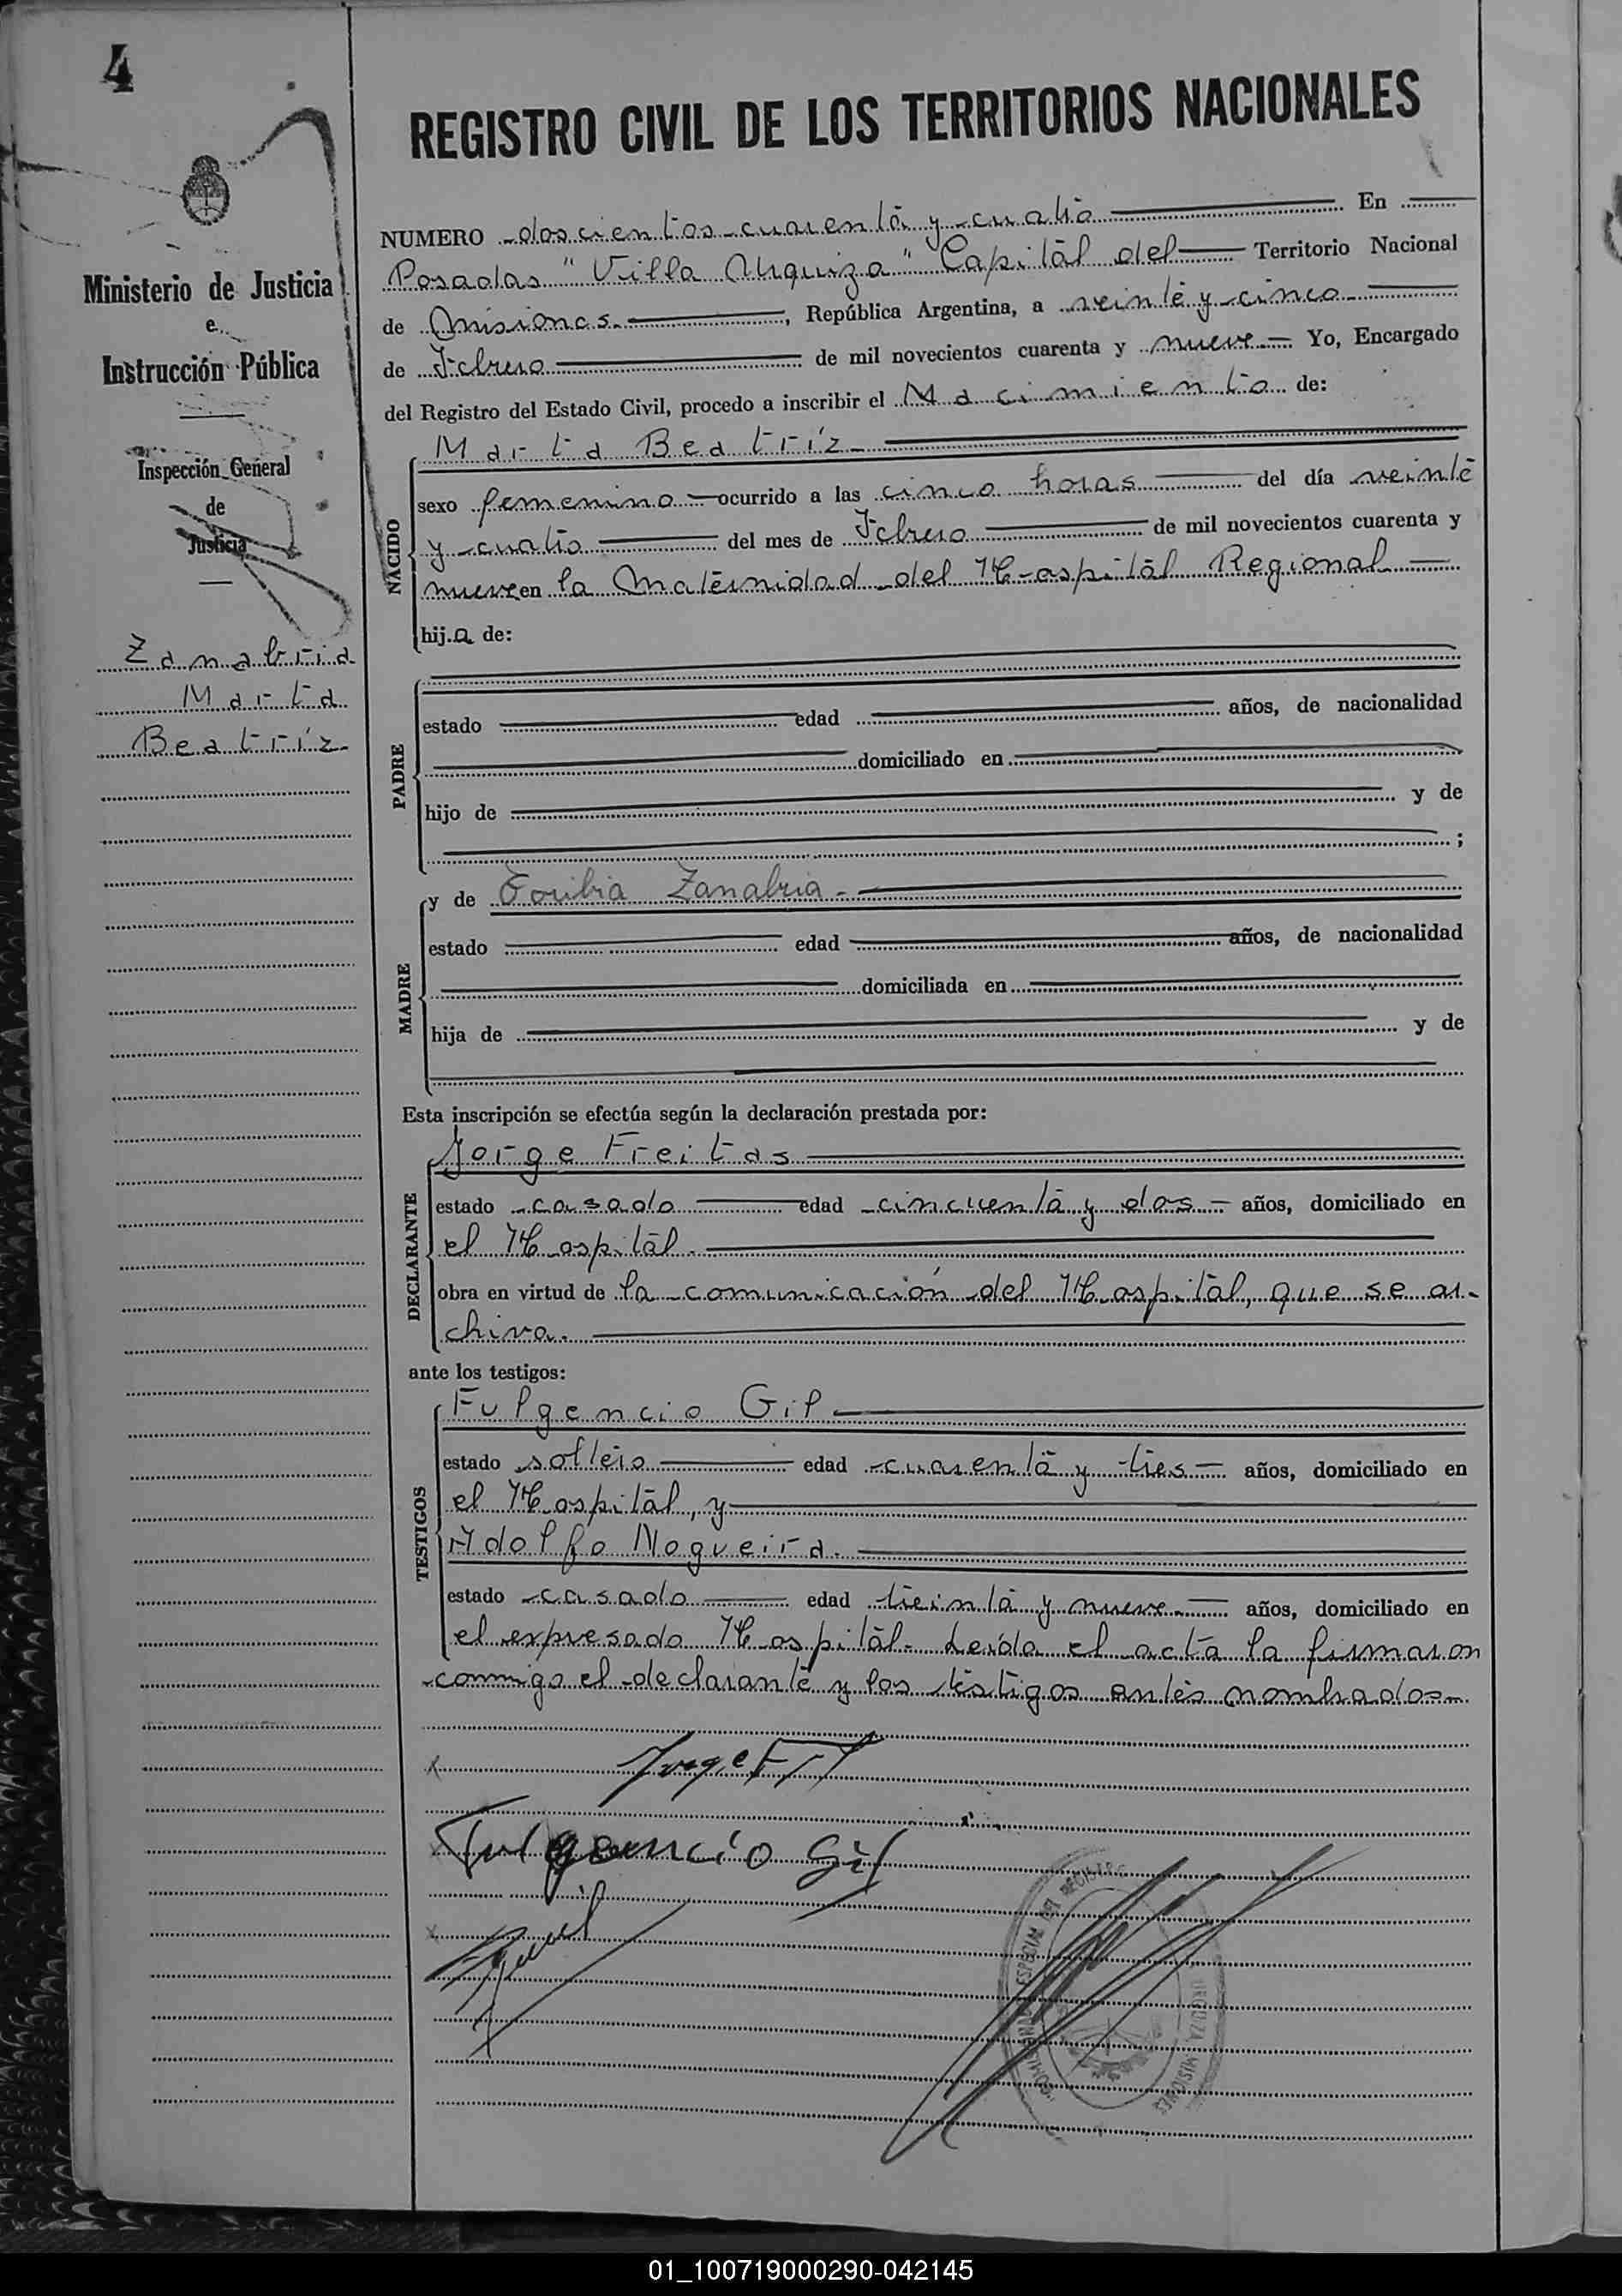 4
REGISTRO CIVIL DE LOS TERRITORIOS NACIONALES
Ministerio de Justicia
e
Instrucción Pública
Inspección General
de
Justicia
Zanabria
Marta
Beatríz
NUMERO doscientos cuarenta y cuatro En
Posadas "Villa Urquiza" Capital del Territorio Nacional
de Misiones. , República Argentina, a veinte y cinco
de Febrero de mil novecientos cuarenta y nueve Yo, Encargado
del Registro del Estado Civil, procedo a inscribir el Nacimiento de:
Marta Beatríz
NACIDO
sexo femenino ocurrido a las cinco horas del día veinte
y cuatro del mes de Febrero de mil novecientos cuarenta y
nueve en la Maternidad del Hospital Regional
hij.a de:
PADRE
estado edad años, de nacionalidad
domiciliado en
hijo de y de
;
MADRE
y de Toribia Zanabria
estado edad años, de nacionalidad
domiciliada en
hija de y de
Esta inscripción se efectúa según la declaración prestada por:
DECLARANTE
Jorge Freitas
estado casado edad cincuenta y dos años, domiciliado en
el Hospital.
obra en virtud de la comunicación del Hospital, que se ar-
chiva.
ante los testigos:
TESTIGOS
Fulgencio Gil
estado soltero edad cuarenta y tres años, domiciliado en
el Hospital, y
Adolfo Nogueira.
estado casado edad treinta y nueve años, domiciliado en
el expresado Hospital. Leída el acta la firmaron
conmigo el declarante y los testigos antes nombrados.
Fulgencio Gil
ESPECIAL DEL REGISTRO
URQUIZA MISIONES
01_100719000290-042145